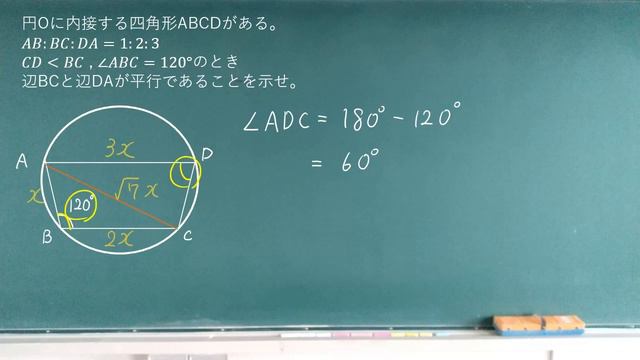 円Oに内接する四角形ABCDがある。
AB:BC:DA=1:2:3
CD<BC , ∠ABC=120°のとき
辺BCと辺DAが平行であることを示せ。
∠ADC = 180° − 120°
= 60°
A
3x
D
x
√7x
120°
B
2x
C